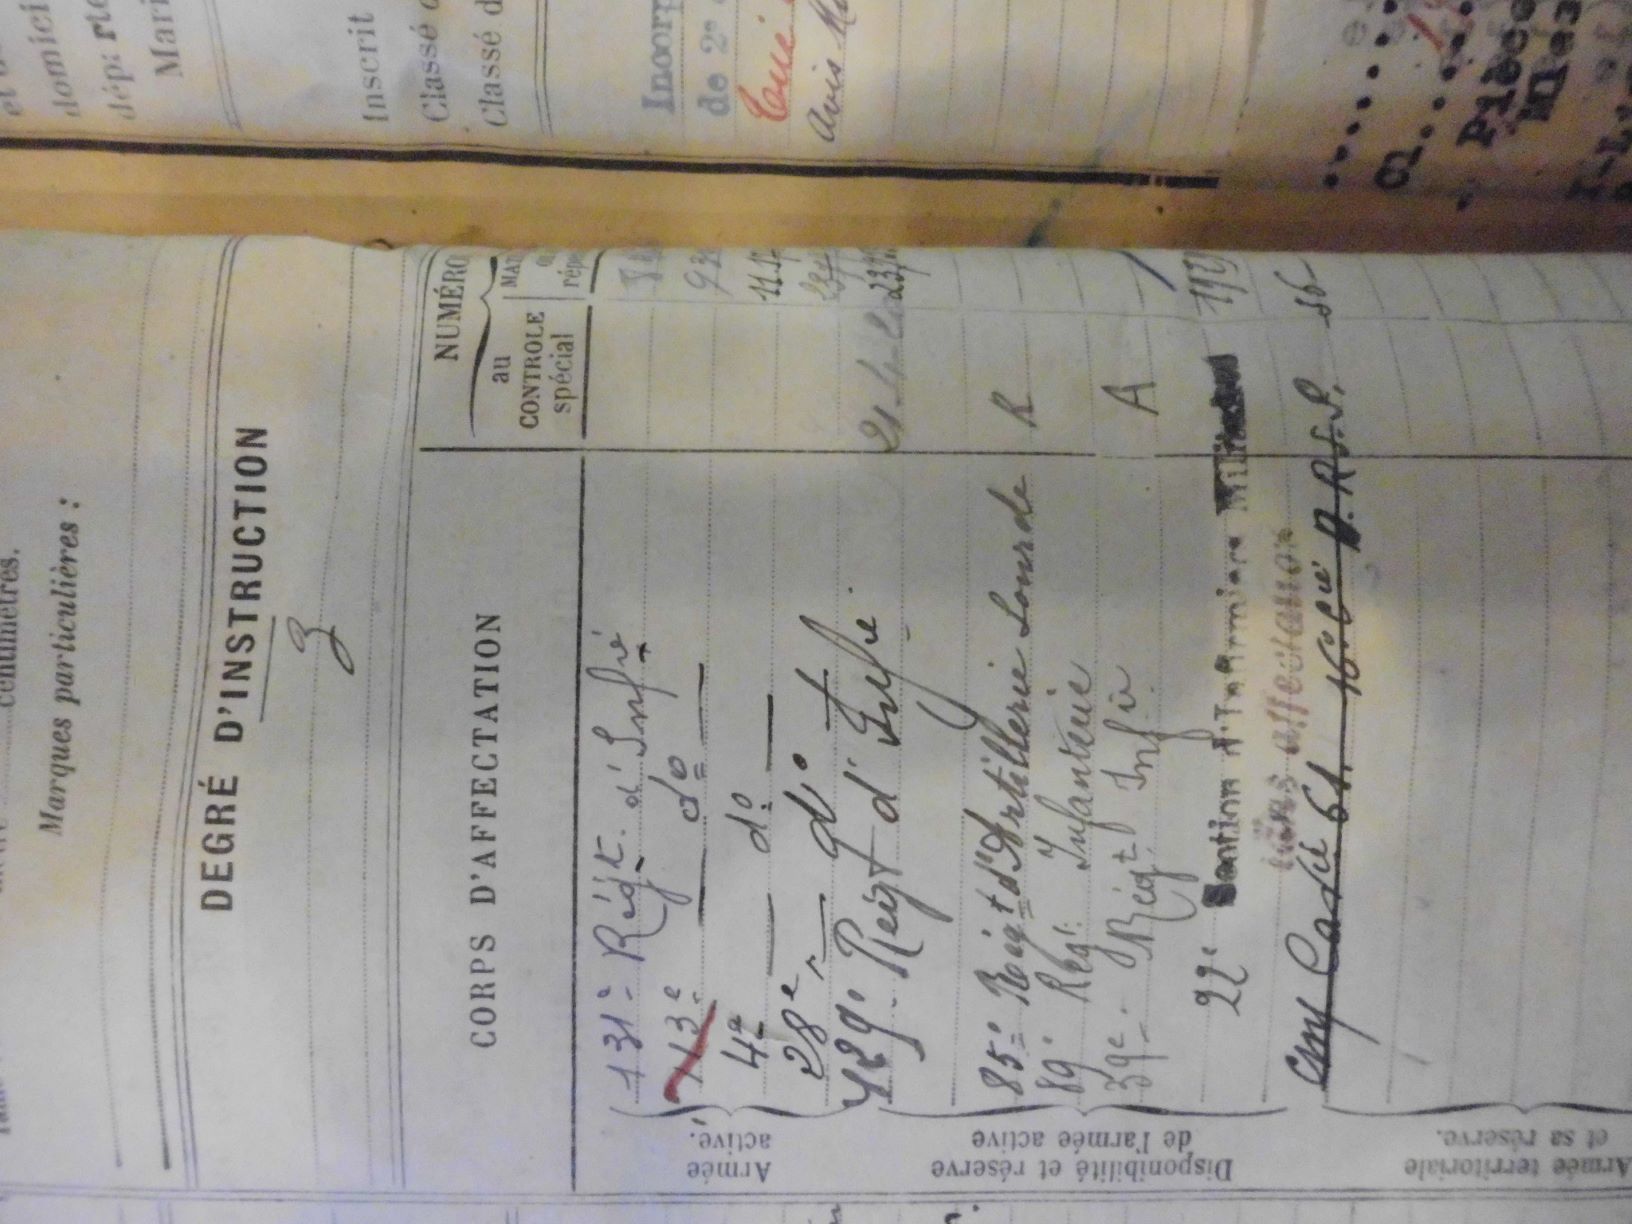 centimètres.
Marques particulières :
DEGRÉ D'INSTRUCTION
3
CORPS D'AFFECTATION
NUMÉRO
au
CONTROLE
spécial
MAT
répe
Armée
active.
131e Régt. d'Infie
113e — do —
4e — do —
28e — do —
129e Regt d'Infie 21-4-20
Disponibilité et réserve
de l'armée active
85e Régt d'Artillerie Lourde R
89e Régt Infanterie
39e Régt Infie A
22e Section d'Infirmiers Militaires
sans affectation
61. 16e Cie D.R.S.P. 56
Armée territoriale
et sa réserve.
domici
dép: rte
Mari
Inscrit
Classé
Classé d
Incorp
de 2e
Avis
Cl.
Pièce